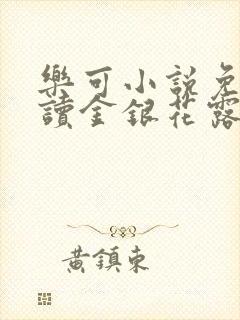 樂可小說免
讀金銀花露
黃鎮東